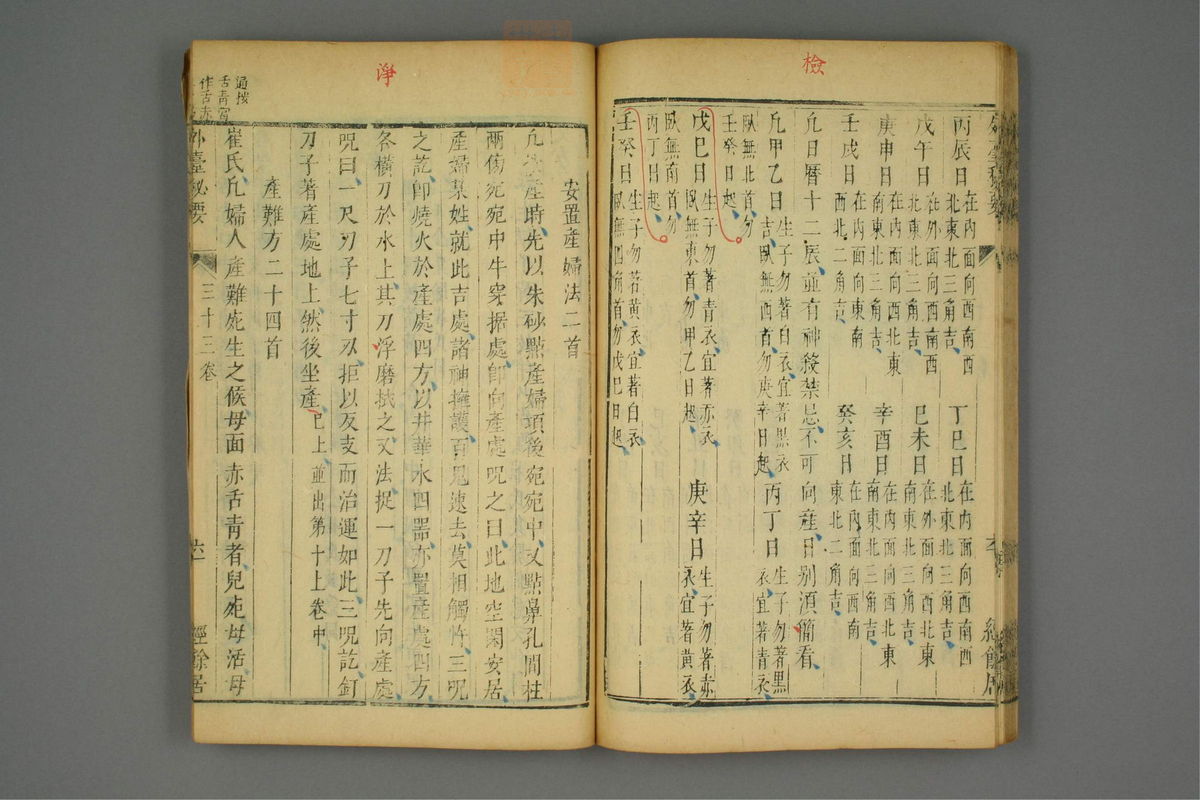 檢
丙辰日 在內面向西南西北東北三角吉 丁巳日 在內面向西南西北東
戊午日 在外面向西南西北東北三角吉 己未日 在外面向西北東南東北三角吉
庚申日 在內面向西北東南東北三角吉 辛酉日 在內面向西北東南東北三角吉
壬戌日 在內面向東南西北二角吉 癸亥日 在內面向西南東北二角吉
凡日曆十二辰並有神殺禁忌不可向產日別須簡看
凡甲乙日 生子勿著白衣宜著黑衣吉臥無西首勿庚辛日起 丙丁日 生子勿著黑衣宜著青衣
臥無北首勿壬癸日起
戊巳日 生子勿著青衣宜著赤衣臥無東首勿甲乙日起 庚辛日 生子勿著赤衣宜著黃衣
臥無南首勿丙丁日起
壬癸日 生子勿著黃衣宜著白衣臥無四角首勿戊巳日起
淨
安置產婦法二首
產時先以朱砂點產婦頂後宛宛中又點鼻孔間柱
兩傷宛宛中牛穿據處卽向產處呪之曰此地空閑安居
產婦某姓就此吉處諸神擁護百鬼速去莫相觸忤三呪
之訖卽燒火於產處四方以井華水四器亦置產處四方
各橫刀於水上其刀浮磨拭之又法捉一刀子先向產處
呪曰一尺刀子七寸刃拒以反支而治運如此三呪訖釘
刀子著產處地上然後坐產 巳上並出第十上卷中
產難方二十四首
崔氏凡婦人產難死生之候母面赤舌青者兒死母活母
外臺祕要 三十三卷 六 經餘居
適按
舌青當
作舌赤